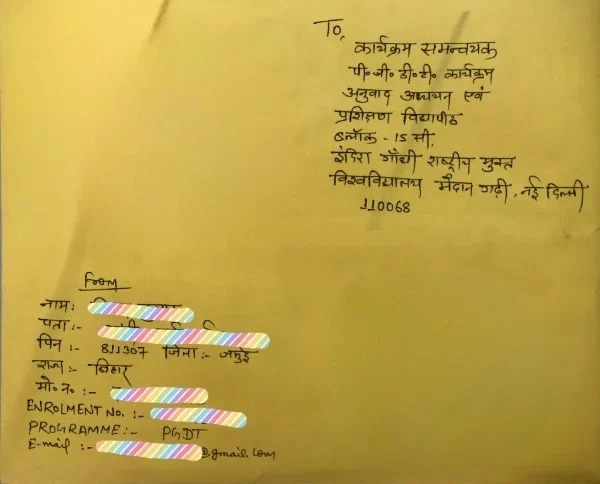 To,
कार्यक्रम समन्वयक
पी.जी.डी.टी. कार्यक्रम
अनुवाद अध्ययन एवं
प्रशिक्षण विद्यापीठ
ब्लॉक - 15 सी,
इंदिरा गाँधी राष्ट्रीय मुक्त
विश्वविद्यालय मैदान गढ़ी, नई दिल्ली
110068
From
नाम:
पता:-
पिन:- 811307 जिला:- जमुई
राज्य:- बिहार
मो.न.:-
ENROLMENT NO. :-
PROGRAMME:- PGDT
E-mail :- @gmail.com